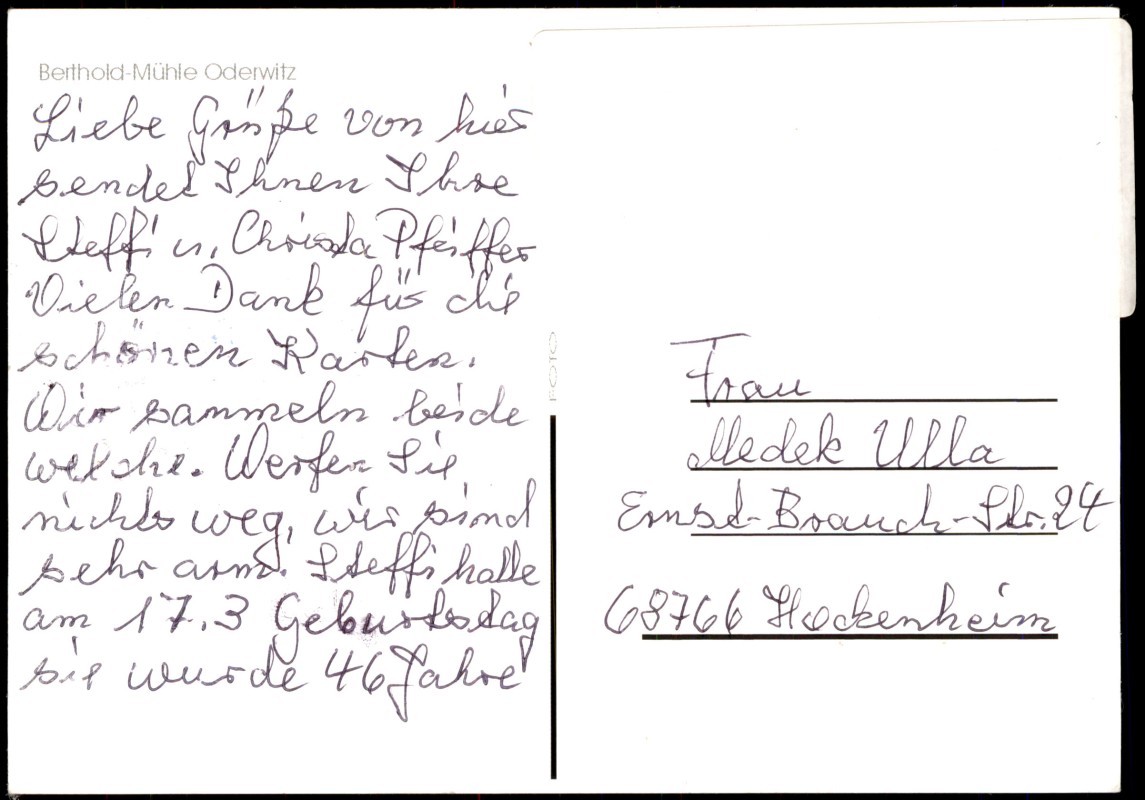 Berthold-Mühle Oderwitz
Liebe Grüße von hier
sendet Ihnen Ihre
Steffi u. Christa Pfeiffer
Vielen Dank für die
schönen Karten.
Wir sammeln beide
welche. Werfen Sie
nichts weg, wir sind
sehr arm. Steffi hatte
am 17.3 Geburtstag
sie wurde 46 Jahre
FOTO
Frau
Medek Ulla
Ernst-Brauch-Str. 24
68766 Hockenheim